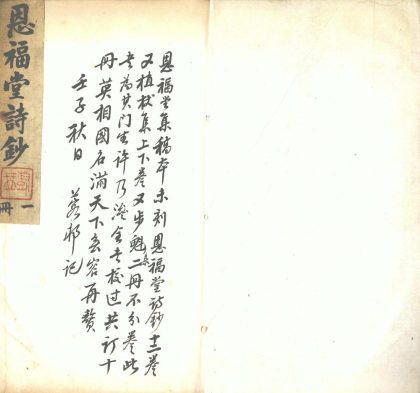 恩福堂詩鈔
一冊
恩福堂集稿本未刻恩福堂詩鈔十二卷
又植杖集上下卷又步魁集二冊不分卷此
書為其门生许乃济全書校过共订十
冊英相國名滿天下玄容再贅
壬子秋日
记